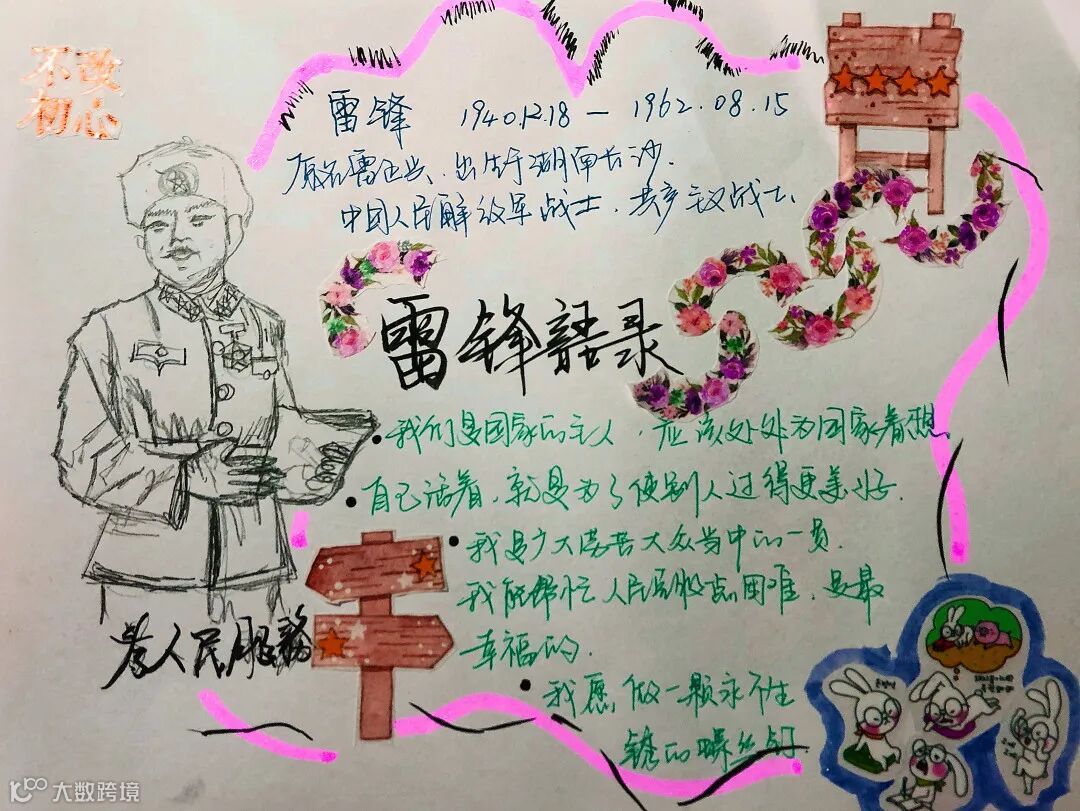 不改
初心
雷锋 1940.12.18 — 1962.08.15
原名雷正兴、出生于湖南长沙.
中国人民解放军战士、共产主义战士、
雷锋語录
我们是国家的主人,应该处处为国家着想.
自己活着,就是为了使别人过得更美好.
我是广大劳苦大众当中的一员.
我能帮忙人民克服点困难,是最
幸福的.
我愿做一颗永不生
锈的螺丝钉
为人民服務
大数跨境